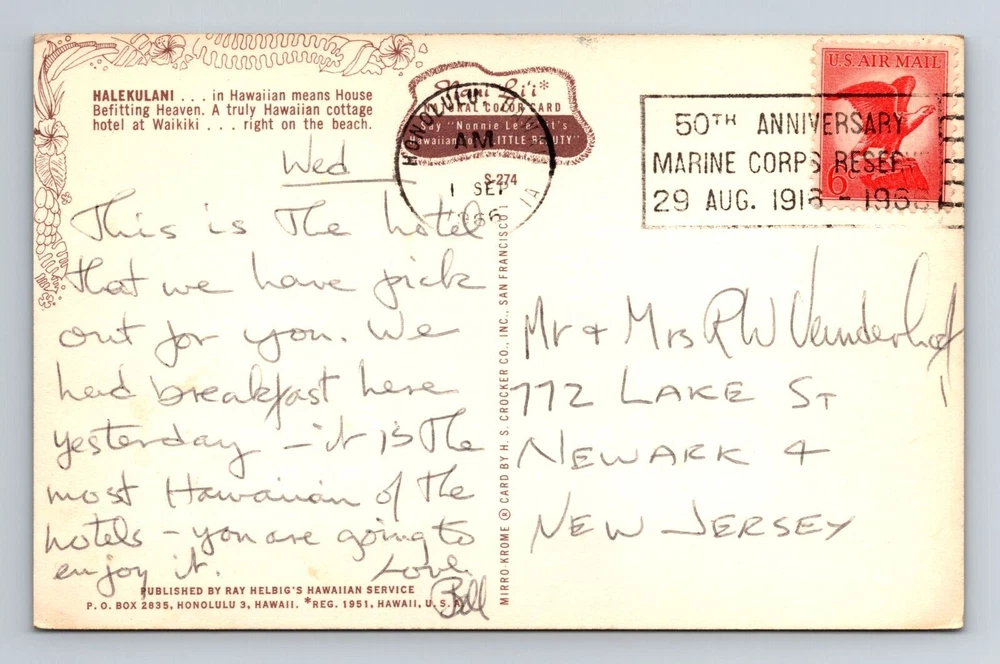 HALEKULANI . . . in Hawaiian means House
Befitting Heaven. A truly Hawaiian cottage
hotel at Waikiki . . . right on the beach.
Nani Li'i*
NATURAL COLOR CARD
Say "Nonnie Le'e" It's
Hawaiian for "LITTLE BEAUTY"
S-274
HONOLULU
AM
1 SEP
1966
50TH ANNIVERSARY
MARINE CORPS RESER
29 AUG. 1916 - 1966
U.S. AIR MAIL
6c
Wed
This is The hotel
that we have pick
out for you. We
had breakfast here
yesterday - it is The
most Hawaiian of the
hotels - you are going to
enjoy it. Love
Bill
Mr & Mrs R W Vanderhoof
772 LAKE ST
NEWARK 4
NEW JERSEY
MIRRO-KROME ® CARD BY H. S. CROCKER CO., INC., SAN FRANCISCO 1
PUBLISHED BY RAY HELBIG'S HAWAIIAN SERVICE
P. O. BOX 2835, HONOLULU 3, HAWAII. *REG. 1951, HAWAII, U. S. A.